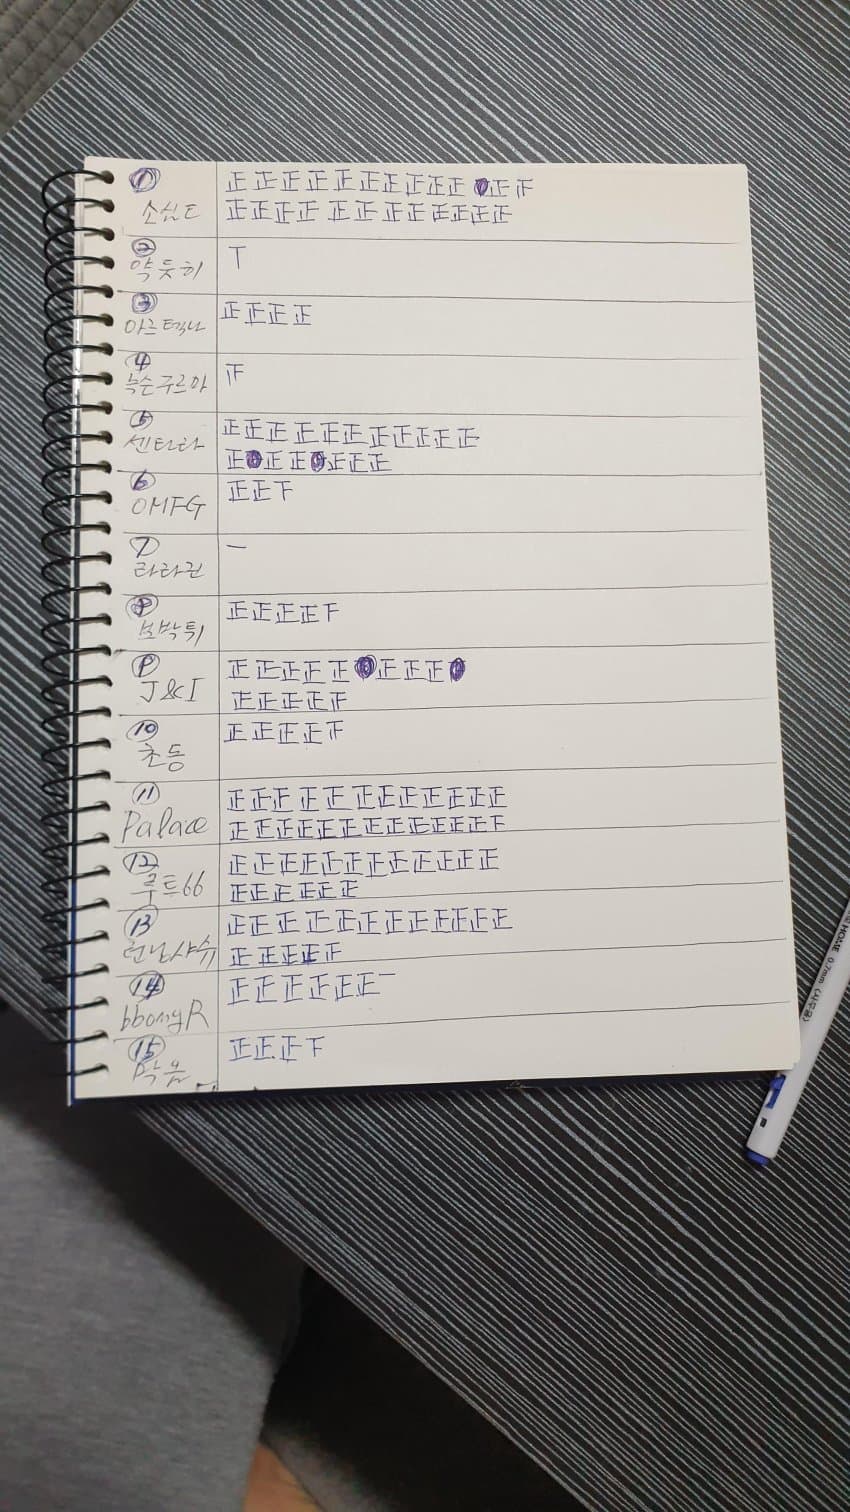 ① 正正正正正正正正正正 正F
소심도 正正正正正正正正正正正正
② T
약듯히
③ 正正正正
아르테리나
④ F
녹슨구르마
⑤ 正正正正正正正正正正正
센타라 正 正正 正正正
⑥ 正正F
OMFG
7 一
라라권
⑧ 正正正正F
보박튀
⑨ 正正正正正 正正正
J&I 正正正正F
⑩ 正正正正F
초등
⑪ 正正正正正正正正正正正正
Palace 正正正正正正正正正正正正F
⑫ 正正正正正正正正正正正正
루트66 正正正正正正
⑬ 正正正正正正正正正正正正
런닝샤쓔 正正正正F
⑭ 正正正正正正一
bbongR
⑮ 正正正F
HOME 0.7mm